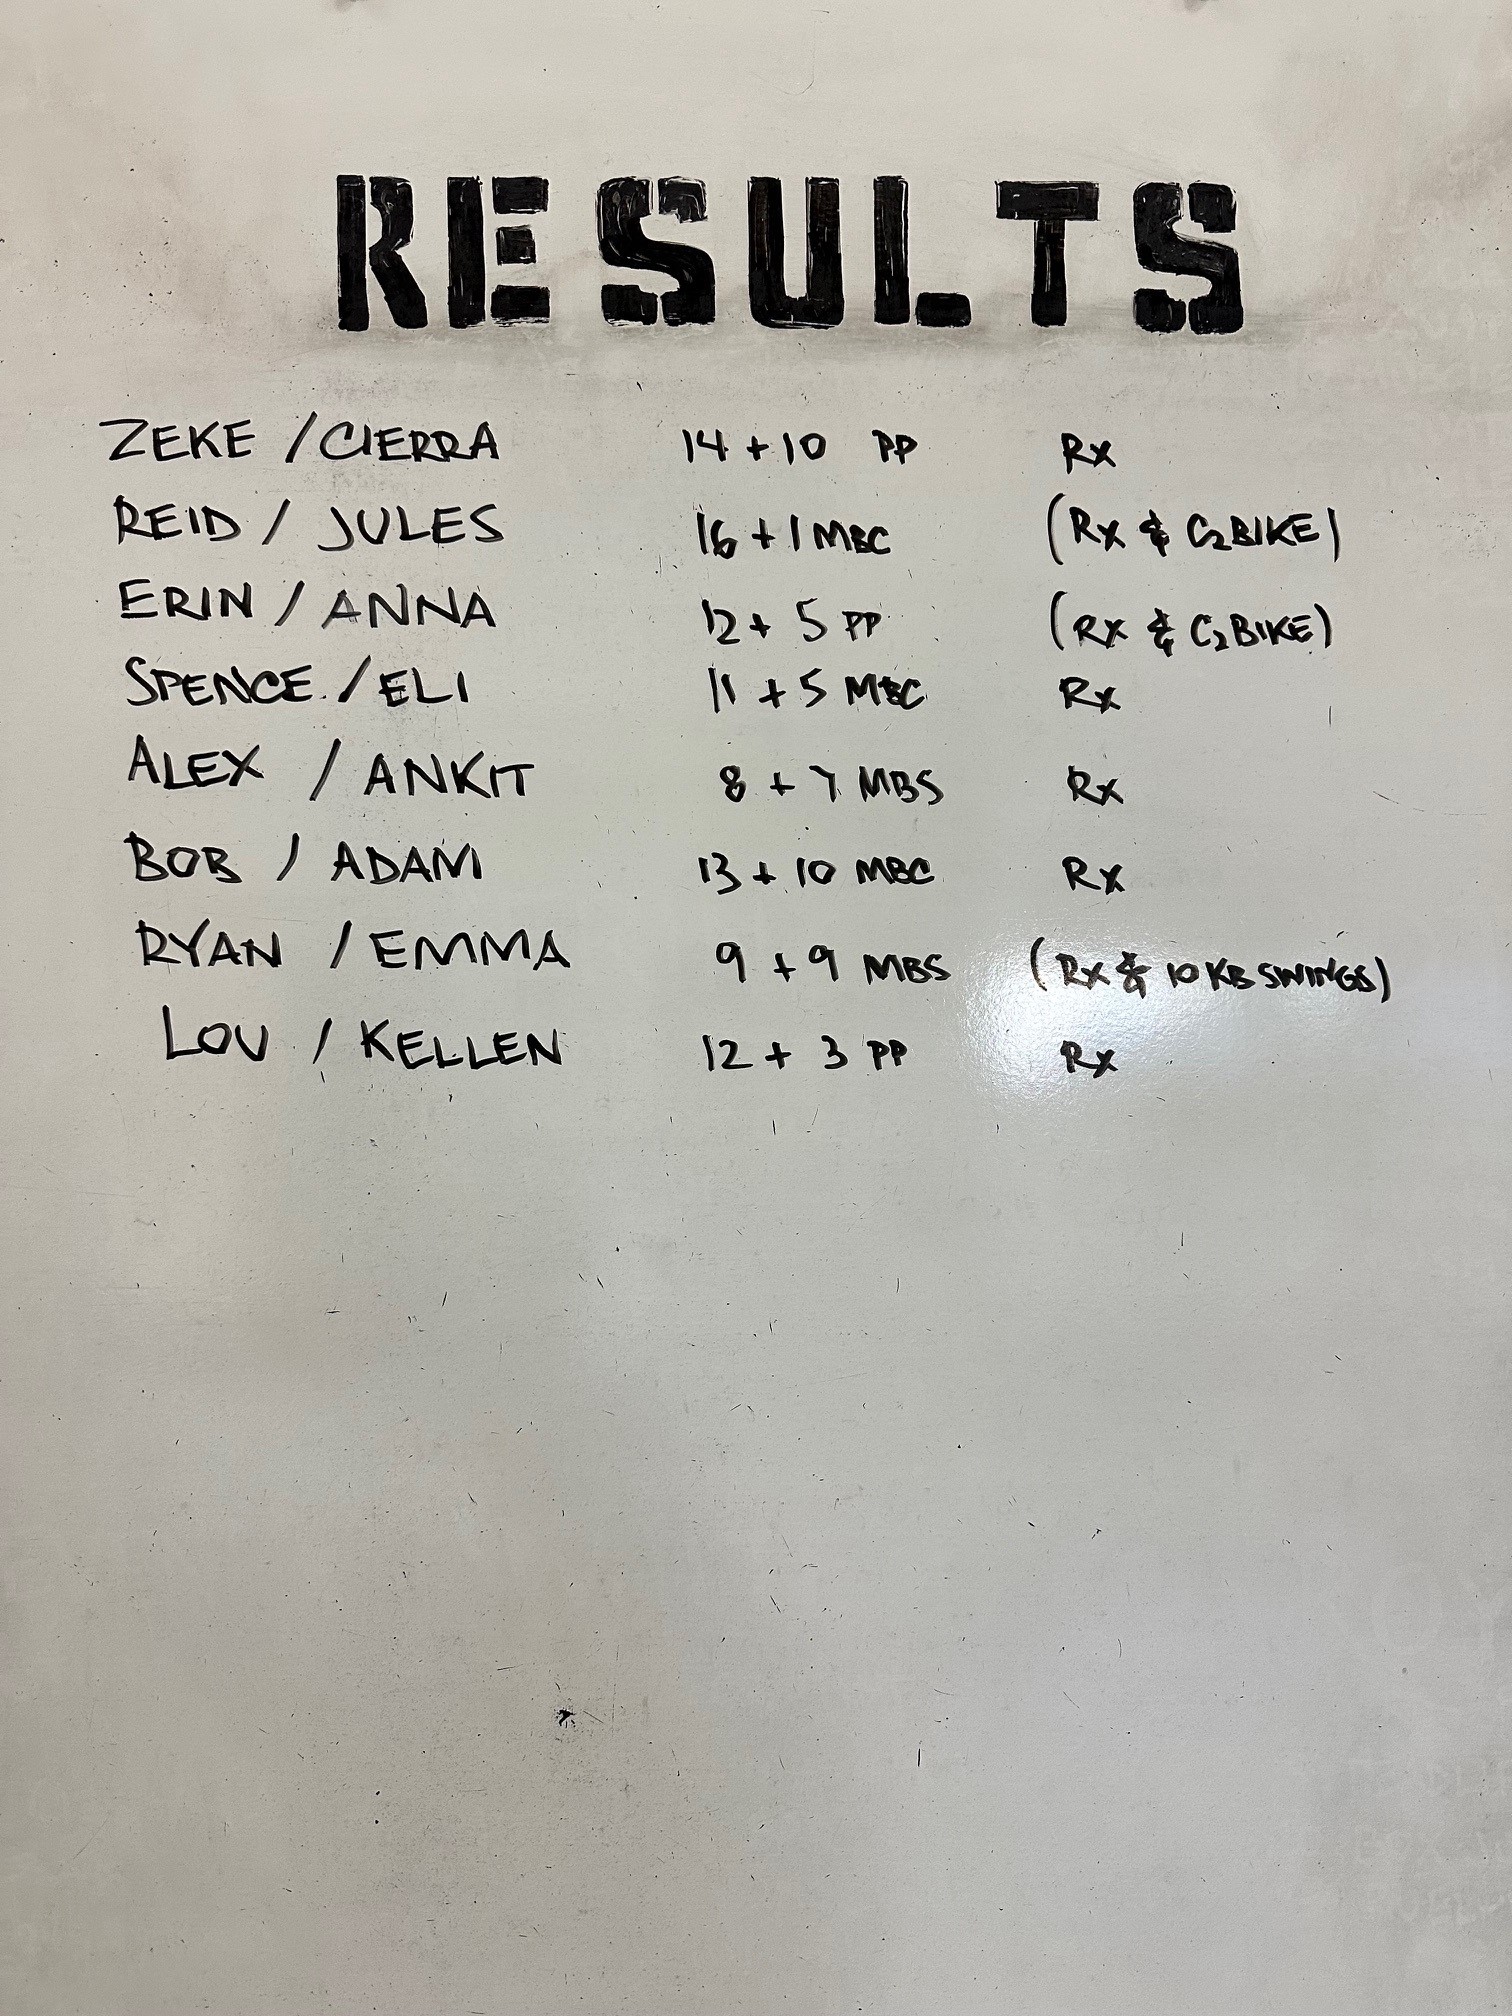 RESULTS
ZEKE / CIERRA 14 + 10 PP Rx
REID / JULES 16 + 1 MBC (Rx & C2 BIKE)
ERIN / ANNA 12 + 5 PP (Rx & C2 BIKE)
SPENCE / ELI 11 + 5 MBC Rx
ALEX / ANKIT 8 + 7 MBS Rx
BOB / ADAM 13 + 10 MBC Rx
RYAN / EMMA 9 + 9 MBS (Rx & 10 KB SWINGS)
LOU / KELLEN 12 + 3 PP Rx